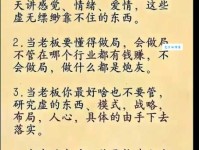 天讲感觉、情绪、爱情，这些
虚无缥缈靠不住的东西。
2.当老板要懂得做局，会做局
不管在哪个行业都有钱赚，不
会做局，做什么都是炮灰。
3.当老板你最好啥也不要管，
研究虚的东西、模式，战略，
布局，人心，具体的由手下去
落实。